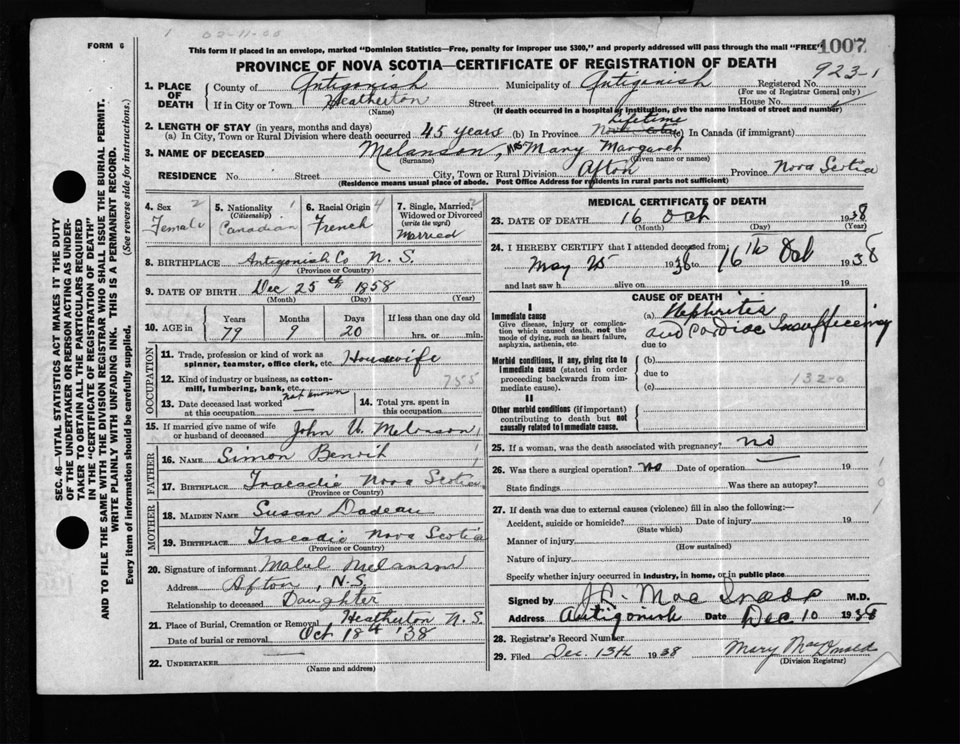 FORM 6
This form if placed in an envelope, marked "Dominion Statistics—Free, penalty for improper use $300," and properly addressed will pass through the mail "FREE"
1007
PROVINCE OF NOVA SCOTIA—CERTIFICATE OF REGISTRATION OF DEATH
923-1
1. PLACE OF DEATH County of Antigonish Municipality of Antigonish Registered No.
(For use of Registrar General only)
If in City or Town Heatherton Street House No.
(Name) (If death occurred in a hospital or institution, give the name instead of street and number)
2. LENGTH OF STAY (in years, months and days)
Lifetime
(a) In City, Town or Rural Division where death occurred 45 years (b) In Province (c) In Canada (if immigrant)
3. NAME OF DECEASED Melanson, Mrs Mary Margaret
(Surname) (Given name or names)
RESIDENCE No. Street City, Town or Rural Division Afton Province Nova Scotia
(Residence means usual place of abode. Post Office Address for residents in rural parts not sufficient)
4. Sex 2 Female
5. Nationality (Citizenship) 1 Canadian
6. Racial Origin 4 French
7. Single, Married, Widowed or Divorced (write the word) 2 Married
8. BIRTHPLACE Antigonish Co N. S.
(Province or Country)
9. DATE OF BIRTH Dec 25th 1858
(Month) (Day) (Year)
10. AGE in Years Months Days If less than one day
79 9 20 hrs. or min.
OCCUPATION
11. Trade, profession or kind of work as spinner, teamster, office clerk, etc. Housewife
12. Kind of industry or business, as cotton-mill, lumbering, bank, etc. 755
13. Date deceased last worked at this occupation not known
14. Total yrs. spent in this occupation
15. If married give name of wife or husband of deceased John U. Melanson
FATHER
16. NAME Simon Benoit
17. BIRTHPLACE Tracadie Nova Scotia
(Province or Country)
MOTHER
18. MAIDEN NAME Susan Dadeau
19. BIRTHPLACE Tracadie Nova Scotia
(Province or Country)
20. Signature of informant Mabel Melanson
Address Afton, N.S.
Relationship to deceased Daughter
21. Place of Burial, Cremation or Removal Heatherton N. S.
Date of burial or removal Oct 18th '38
22. UNDERTAKER
(Name and address)
MEDICAL CERTIFICATE OF DEATH
23. DATE OF DEATH 16 Oct 1938
(Month) (Day) (Year)
24. I HEREBY CERTIFY that I attended deceased from:
May 25 1938 to 16th Oct 1938
and last saw h alive on 19
CAUSE OF DEATH
I
Immediate cause
Give disease, injury or complication which caused death, not the mode of dying, such as heart failure, asphyxia, asthenia, etc.
(a) Nephritis
and Cardiac Insufficiency
due to
Morbid conditions, if any, giving rise to immediate cause (stated in order proceeding backwards from immediate cause).
(b)
due to
(c) 132-0
II
Other morbid conditions (if important) contributing to death but not causally related to immediate cause.
25. If a woman, was the death associated with pregnancy? no
26. Was there a surgical operation? no Date of operation 19
State findings Was there an autopsy?
27. If death was due to external causes (violence) fill in also the following:—
Accident, suicide or homicide? Date of injury 19
(State which)
Manner of injury
(How sustained)
Nature of injury
Specify whether injury occurred in industry, in home, or in public place
Signed by M.D.
Address Antigonish Date Dec 10 1938
28. Registrar's Record Number
29. Filed Dec. 13th 1938 Mary MacDonald
(Division Registrar)
SEC. 46—VITAL STATISTICS ACT MAKES IT THE DUTY
OF THE UNDERTAKER OR PERSON ACTING AS UNDER-
TAKER TO OBTAIN ALL THE PARTICULARS REQUIRED
IN THE "CERTIFICATE OF REGISTRATION OF DEATH"
AND TO FILE THE SAME WITH THE DIVISION REGISTRAR WHO SHALL ISSUE THE BURIAL PERMIT.
WRITE PLAINLY WITH UNFADING INK. THIS IS A PERMANENT RECORD.
Every item of information should be carefully supplied. (See reverse side for instructions.)